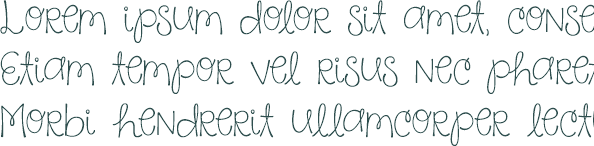 Lorem ipsum dolor sit amet, conse
Etiam tempor vel risus nec pharet
Morbi hendrerit ullamcorper lect